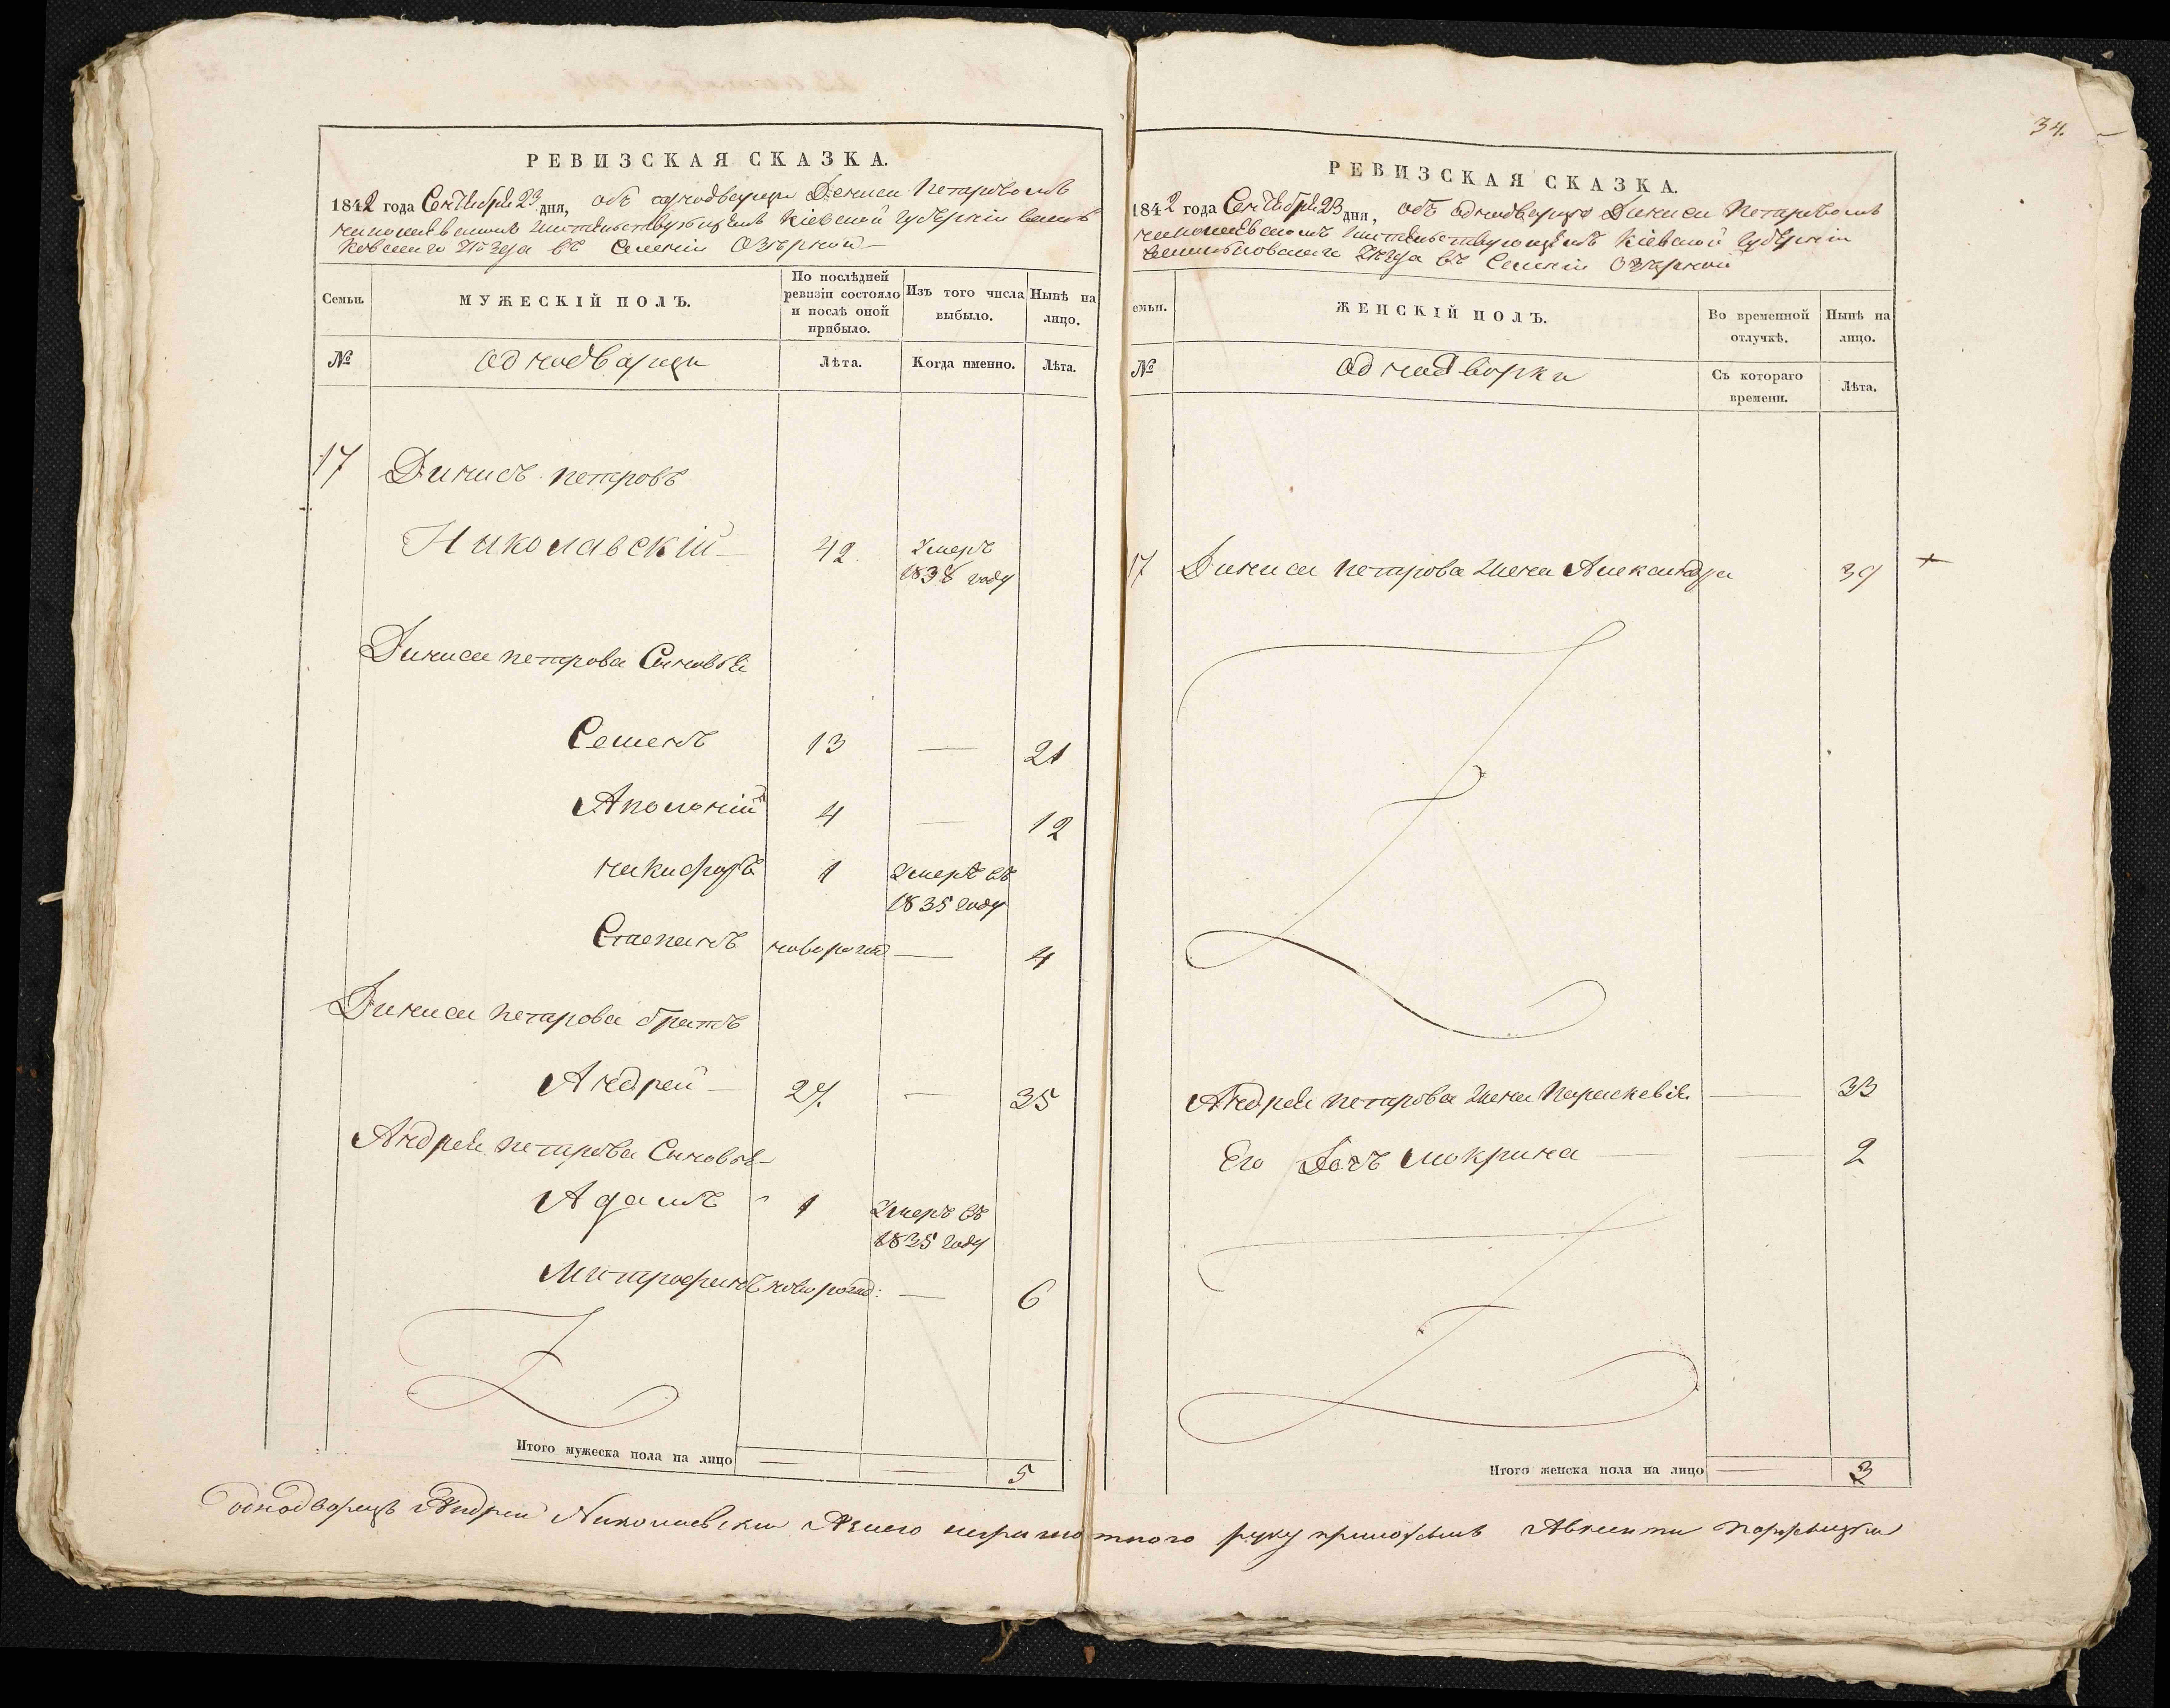 РЕВИЗСКАЯ СКАЗКА.
1842 года Сентебря 23 дня, объ однодворци Дениси Петровомъ
николаевскомъ жительствующемъ Кіевской Губерніи
ковского уезда въ Селеніи Озѣрной
Семьи.
МУЖЕСКІЙ ПОЛЪ.
По послѣдней ревизіи состояло и послѣ оной прибыло.
Изъ того числа выбыло.
Нынѣ на лицо.
№
однодворци
Лѣта.
Когда именно.
Лѣта.
17 Динисъ петровъ
Николавскій 42. Умеръ
1838 году
Диниса петрова Сыновья
Семенъ 13 — 21
Аполоній 4 — 12
никифоръ 1 Умеръ въ
1835 году
Степанъ новорожд — 4
Диниса петрова братъ
Андрей 27. — 35
Андрея петрова Сыновья
Адамъ 1 Умеръ въ
1835 году
Митрофанъ новорожд: — 6
Итого мужеска пола на лицо — — 5
34.
РЕВИЗСКАЯ СКАЗКА.
1842 года Сентебря 23 дня, объ однодворцѣ Диниси Петровомъ
николаевскомъ жительствующемъ Кіевской Губерніи
уезда въ Селеніи Озѣрной
емьи.
ЖЕНСКІЙ ПОЛЪ.
Во временной отлучкѣ.
Нынѣ на лицо.
№
однодворки
Съ котораго времени.
Лѣта.
17 Диниса петрова жена Александра 39 +
Андрея петрова жена Параскевія — 33
Его Дочъ мокрина — 2
Итого женска пола на лицо — 3
однодворецъ Андрей Николаевски А занего неграмотного руку приложилъ